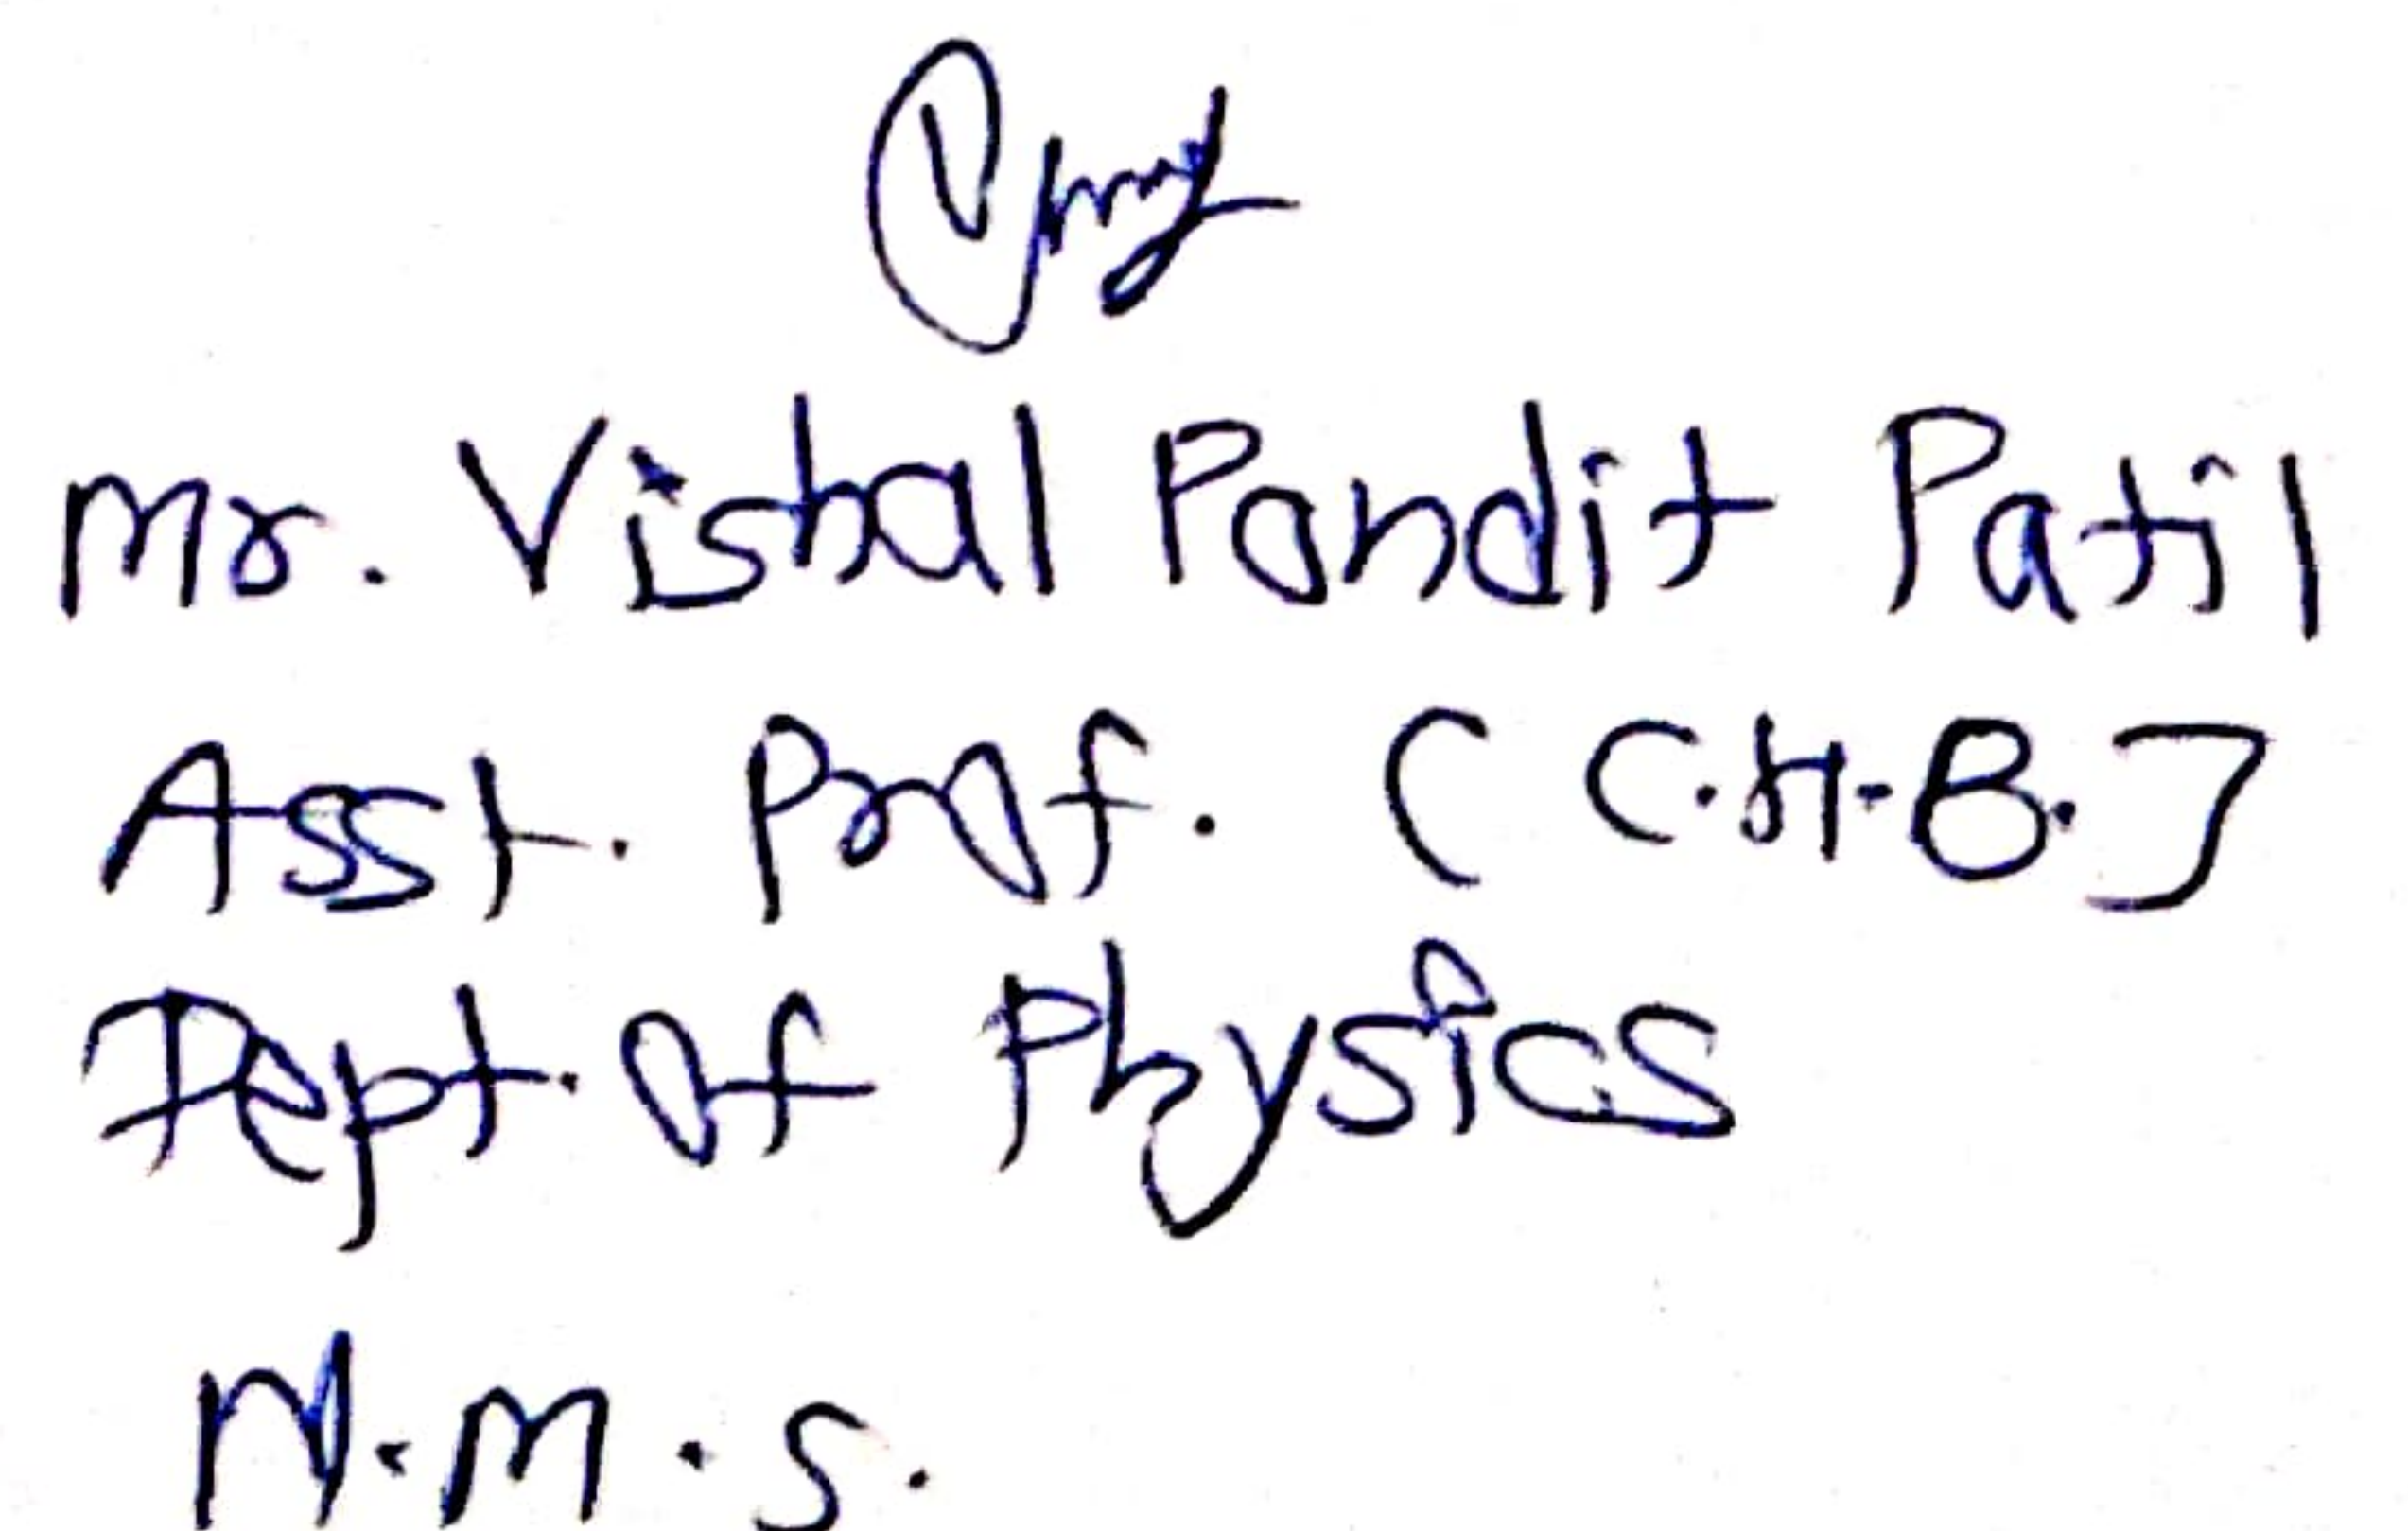 Mr. Vishal Pandit Patil
Asst. Prof. (C.H.B.]
Dept. of Physics
N.M.S.